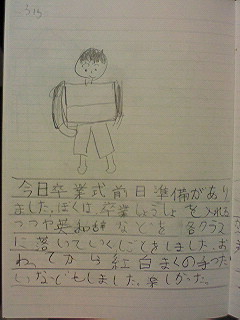 3/13
今日卒業式前日準備があり
ました。ぼくは卒業しょうしょを入れる
つつや英和辞などを各クラス
に置いていくしごとをしました。お
わってから紅白まくの手つだ
いなどもしました。楽しかった。